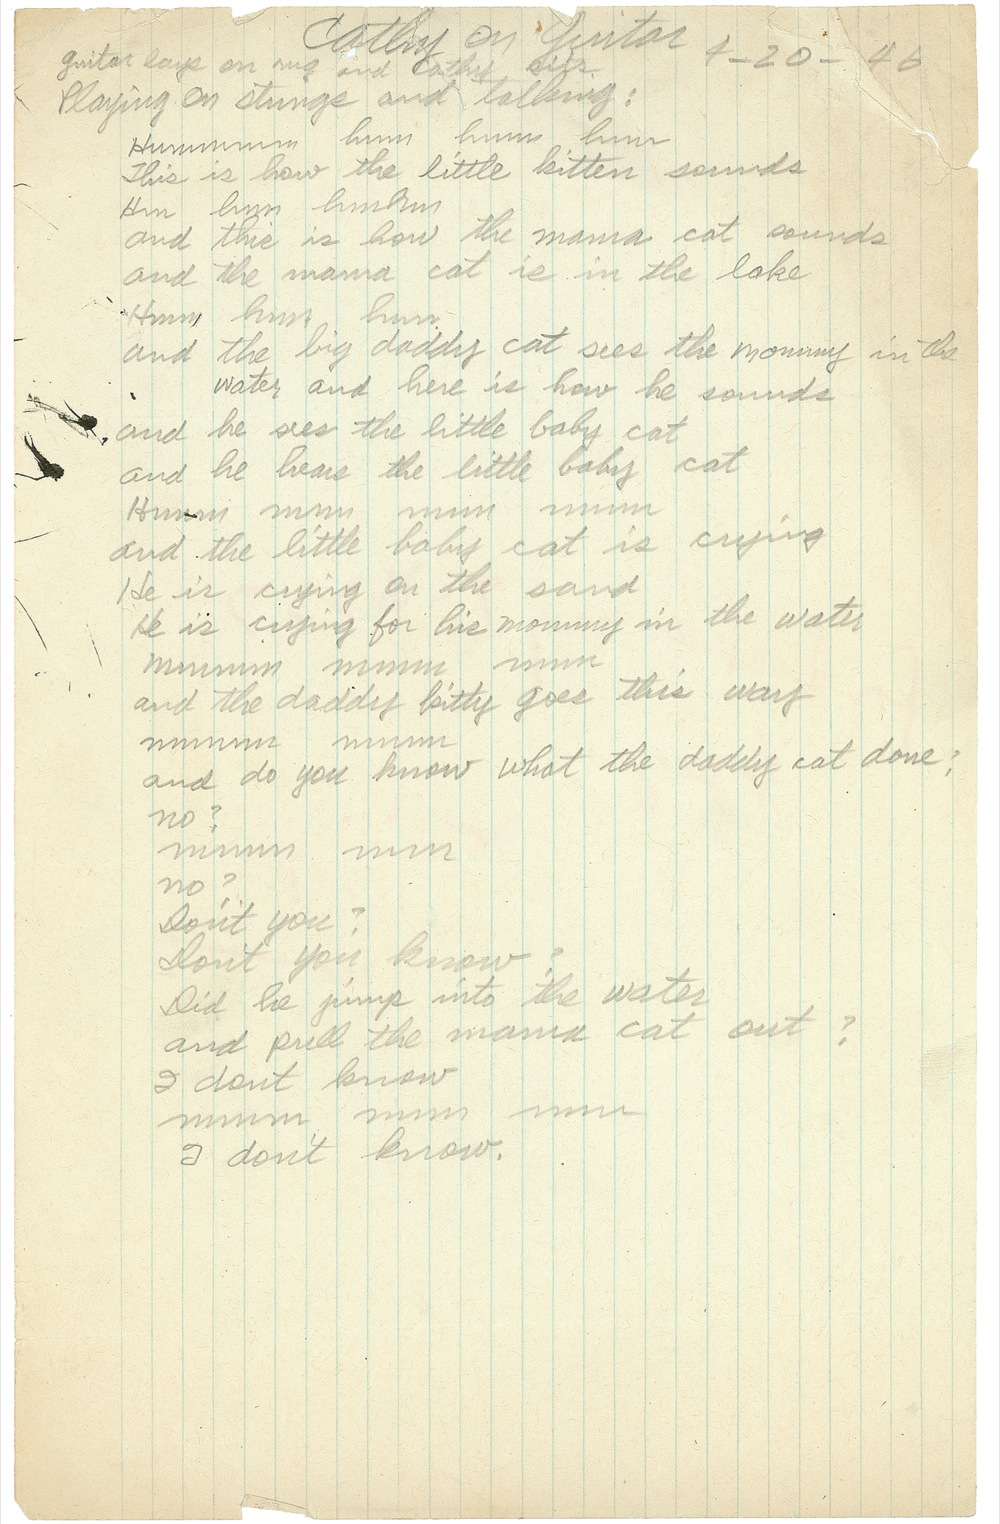 Cathy on Guitar 4-20-46
guitar lays on rug and Cathy sits
Playing on strings and talking:
Hummmmm hum humm hum
This is how the little kitten sounds
Hm hmm hmhm
and this is how the mama cat sounds
and the mama cat is in the lake
Hmm hmm hmm
and the big daddy cat sees the mommy in the
water and here is how he sounds
and he sees the little baby cat
and he hears the little baby cat
Hmmm mmm mmm mmm
and the little baby cat is crying
He is crying on the sand
He is crying for his mommy in the water
mmmmm mmmm mmm
and the daddy kitty goes this way
mmmmm mmmm
and do you know what the daddy cat done?
no?
mmmmm mmm
no?
Don't you?
Don't you know?
Did he jump into the water
and pull the mama cat out?
I dont know
mmmmm mmm mmm
I don't know.